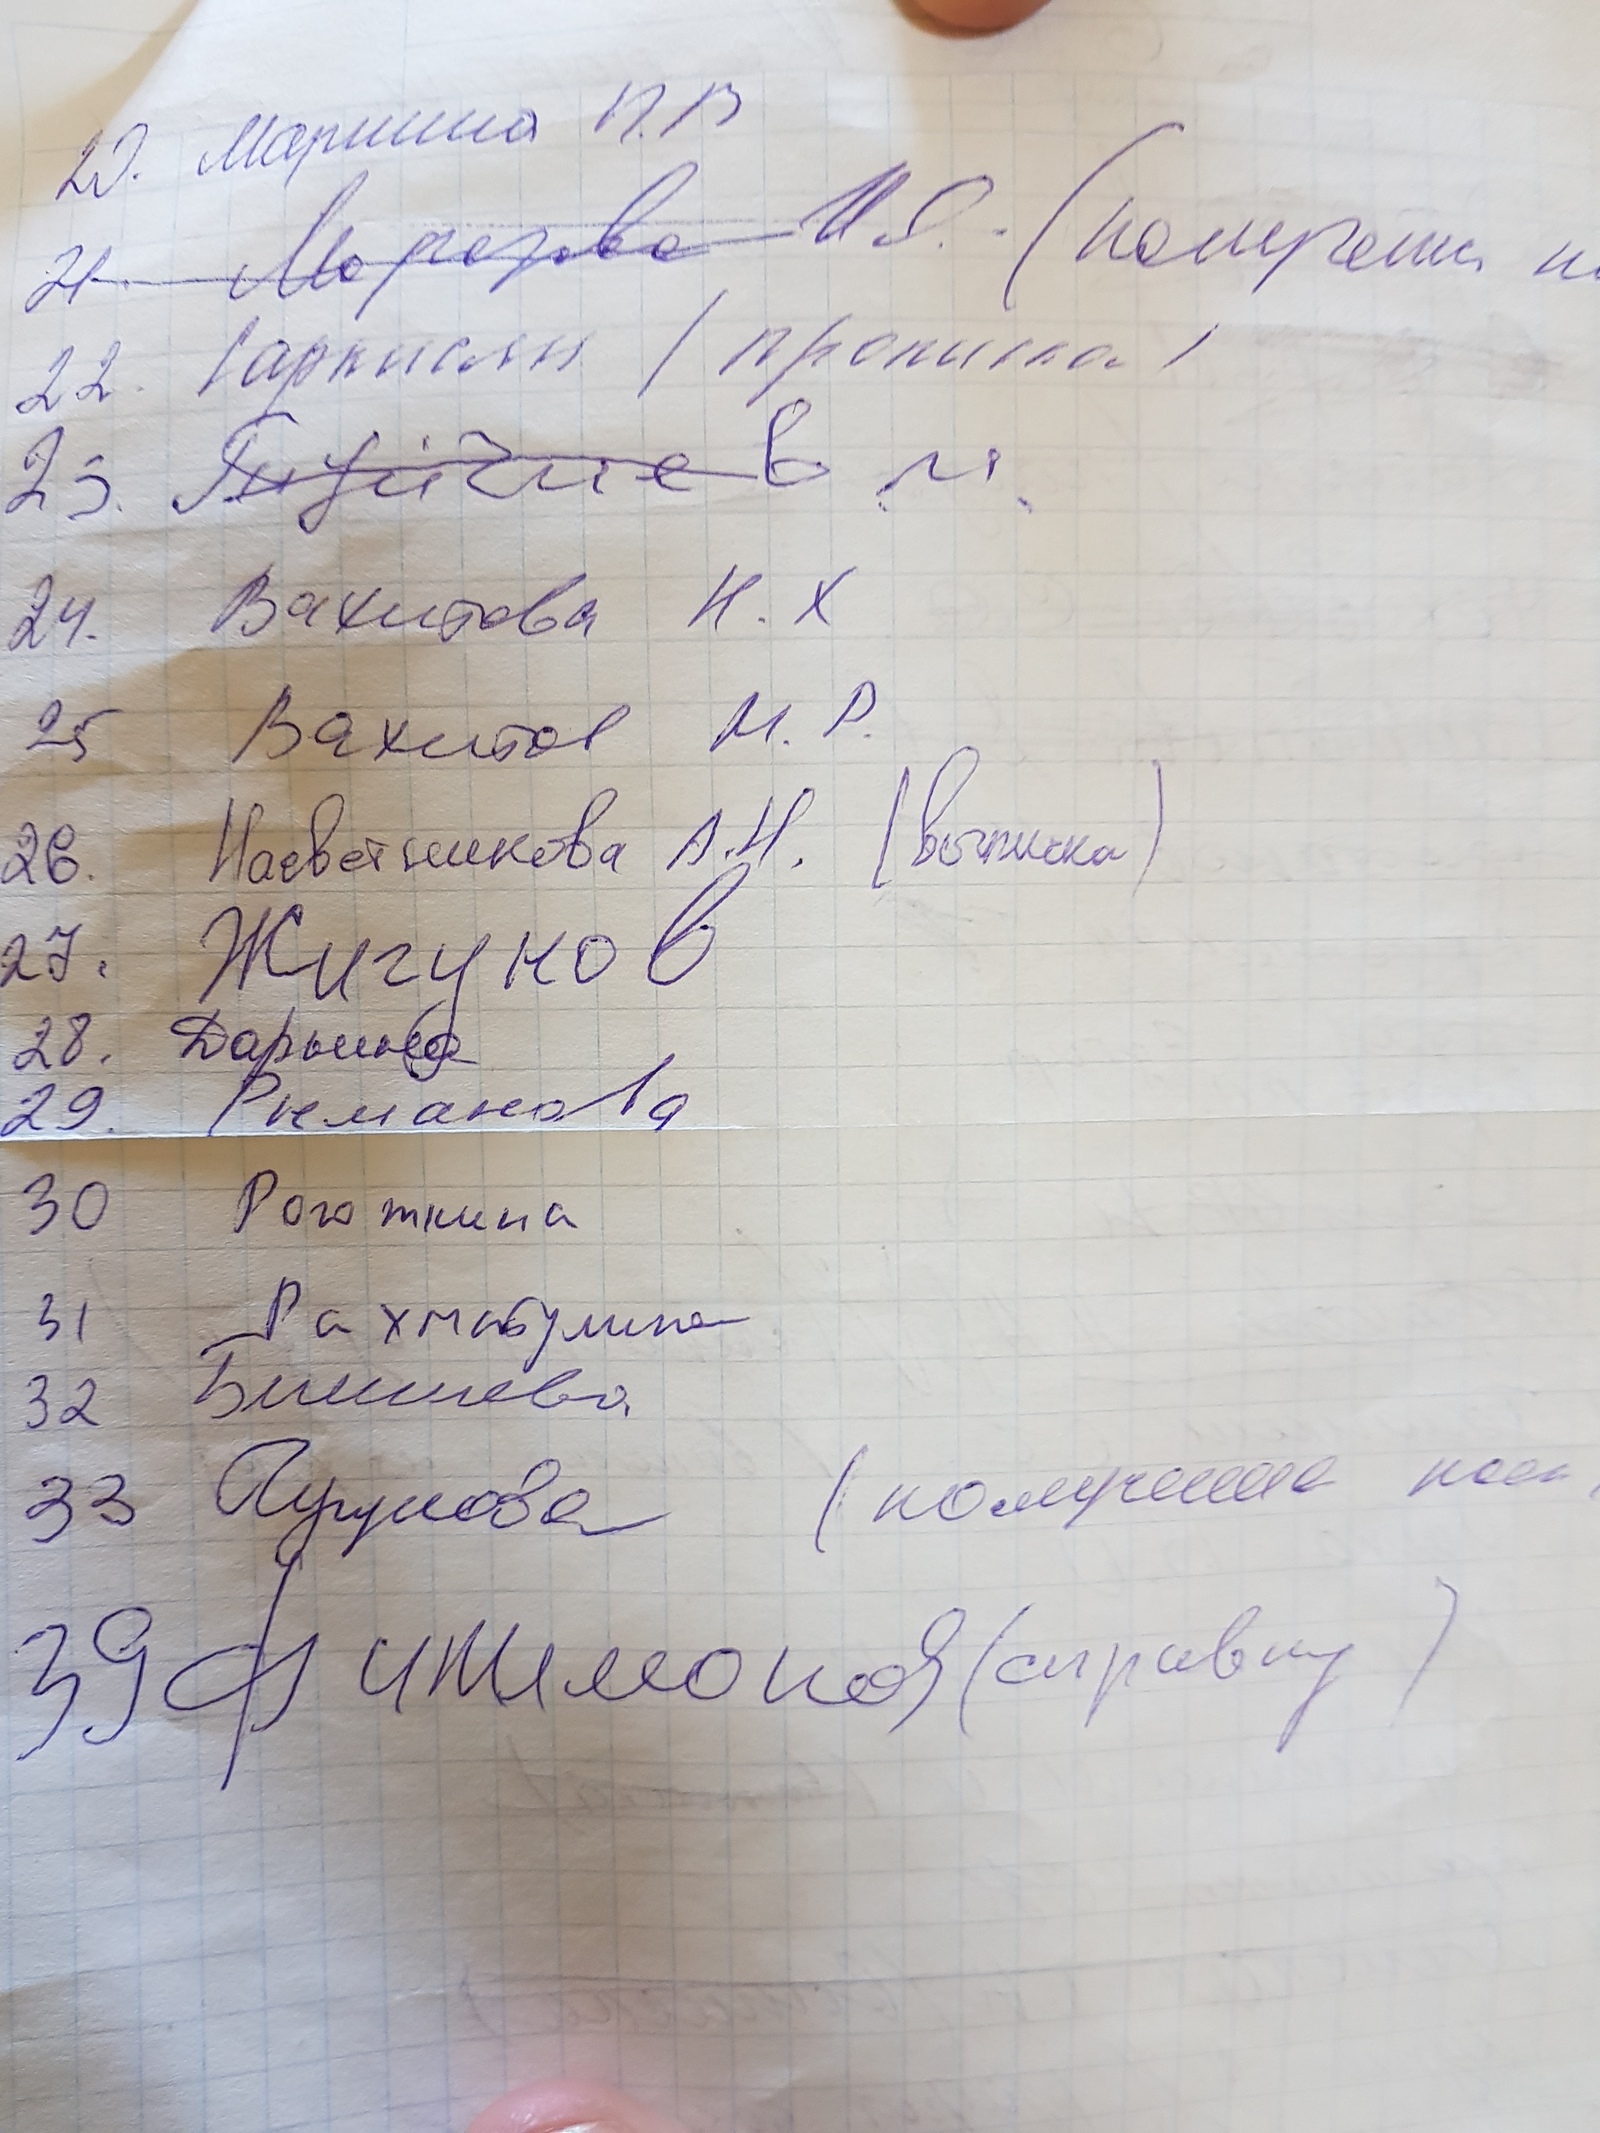 20. Маринина П.В
21. Морозова И.Я. (получени
22. Саркисян (прописка)
23. в м.
24. Вахитова Н.Х
25 Вахитов М.Р.
26. Насветникова А.Н. (выписка)
27. Жигунов
28. Дарьина
29. Риманова
30 Роготкина
31 Рахматулина
32 Бикшева
33 (получение
39 Фитимонов (справку)